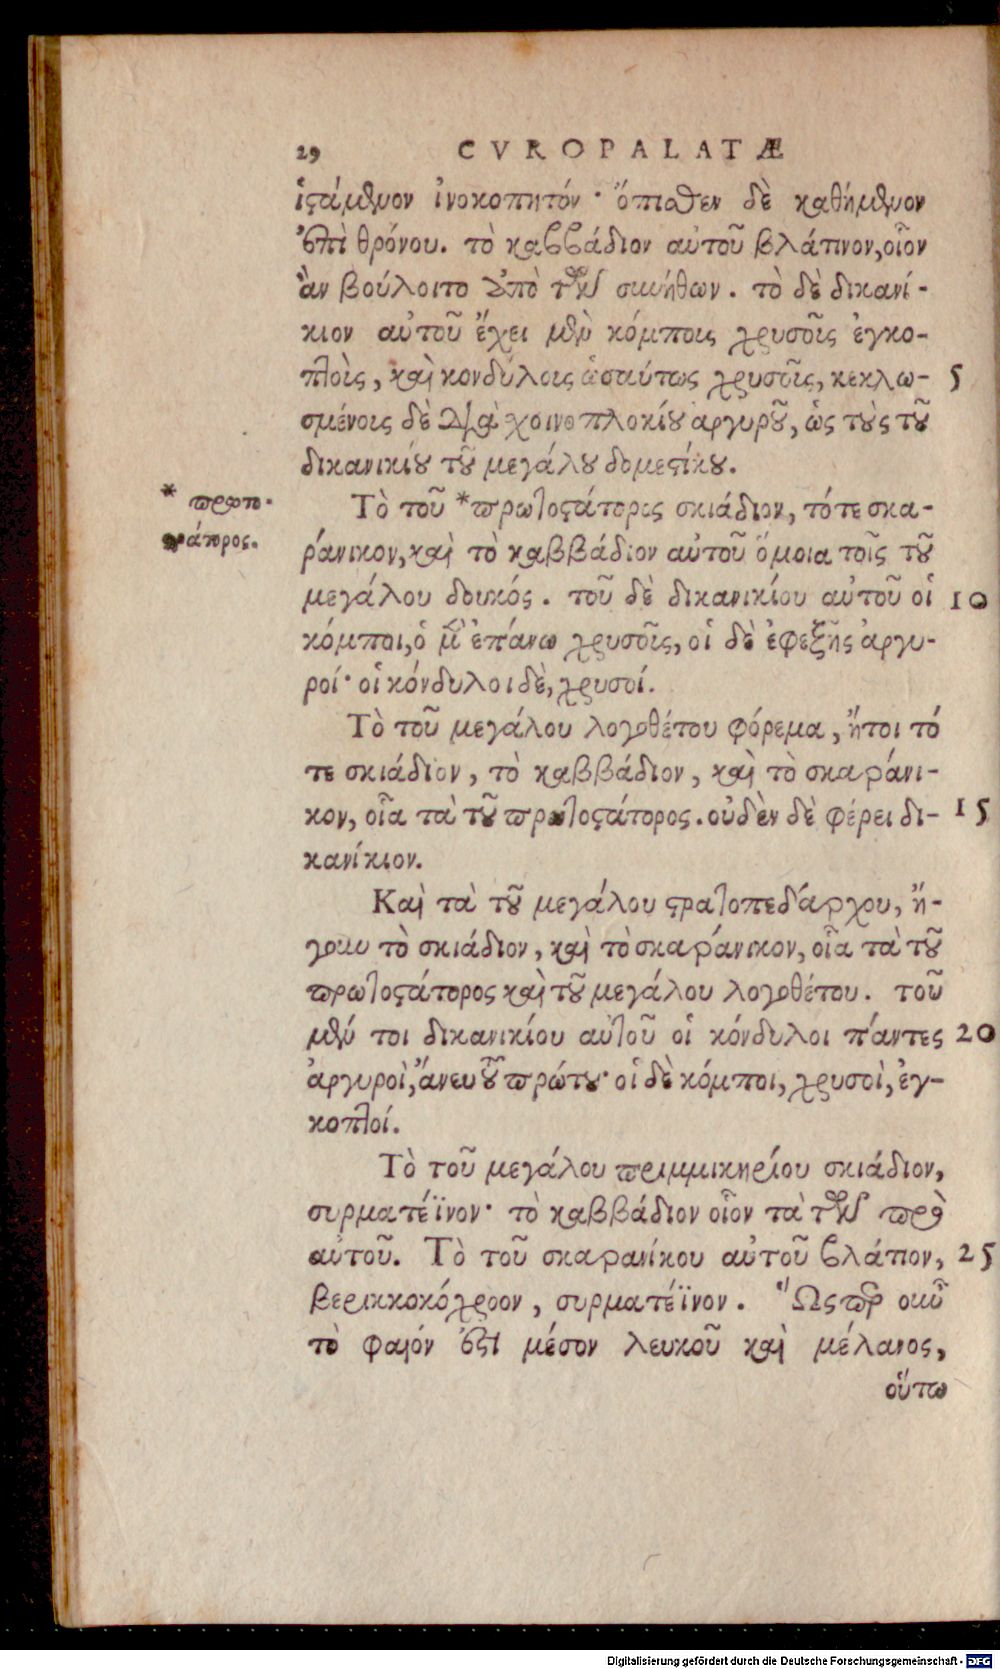 29 CVROPALATÆ
ἱστάμενον ἰνοκοπητόν· ὄπισθεν δὲ καθήμενον
ἐπὶ θρόνου. τὸ καββάδιον αὐτοῦ βλάπινον, οἷον
ἂν βούλοιτο ἀπὸ τῶν συνήθων. τὸ δὲ δικανί-
κιον αὐτοῦ ἔχει μὲν κόμποις χρυσοῖς ἐγκο-
πτοὶς, καὶ κονδύλοις ὡσαύτως χρυσοῖς, κεκλω- 5
σμένοις δὲ διὰ χοινοπλοκίου ἀργυροῦ, ὡς τοὺς τοῦ
δικανικίου τοῦ μεγάλου δομεστίκου.
* πρωτο-
στράτορος.
Τὸ τοῦ *πρωτοστάτορος σκιάδιον, τότε σκα-
ράνικον, καὶ τὸ καββάδιον αὐτοῦ ὅμοια τοῖς τοῦ
μεγάλου δουκός. τοῦ δὲ δικανικίου αὐτοῦ οἱ 10
κόμποι, ὁ μὲν ἐπάνω χρυσοῖς, οἱ δὲ ἐφεξῆς ἀργυ-
ροί· οἱ κόνδυλοι δὲ, χρυσοί.
Τὸ τοῦ μεγάλου λογοθέτου φόρεμα, ἤτοι τό
τε σκιάδιον, τὸ καββάδιον, καὶ τὸ σκαράνι-
κον, οἷα τὰ τοῦ πρωτοστάτορος. οὐδὲν δὲ φέρει δι- 15
κανίκιον.
Καὶ τὰ τοῦ μεγάλου στρατοπεδάρχου, ἤ-
γουν τὸ σκιάδιον, καὶ τὸ σκαράνικον, οἷα τὰ τοῦ
πρωτοστάτορος καὶ τοῦ μεγάλου λογοθέτου. τοῦ
μέν τοι δικανικίου αὐτοῦ οἱ κόνδυλοι πάντες 20
ἀργυροὶ, ἄνευ τοῦ πρώτου· οἱ δὲ κόμποι, χρυσοὶ, ἐγ-
κοπτοί.
Τὸ τοῦ μεγάλου πριμμικηρίου σκιάδιον,
συρματέϊνον· τὸ καββάδιον οἷον τὰ τῶν πρὸ
αὐτοῦ. Τὸ τοῦ σκαρανίκου αὐτοῦ βλάπον, 25
βερικκοκόχροον, συρματέϊνον. Ὥσπερ οὖν
τὸ φαιόν ἐστι μέσον λευκοῦ καὶ μέλανος,
οὕτω
Digitalisierung gefördert durch die Deutsche Forschungsgemeinschaft - DFG